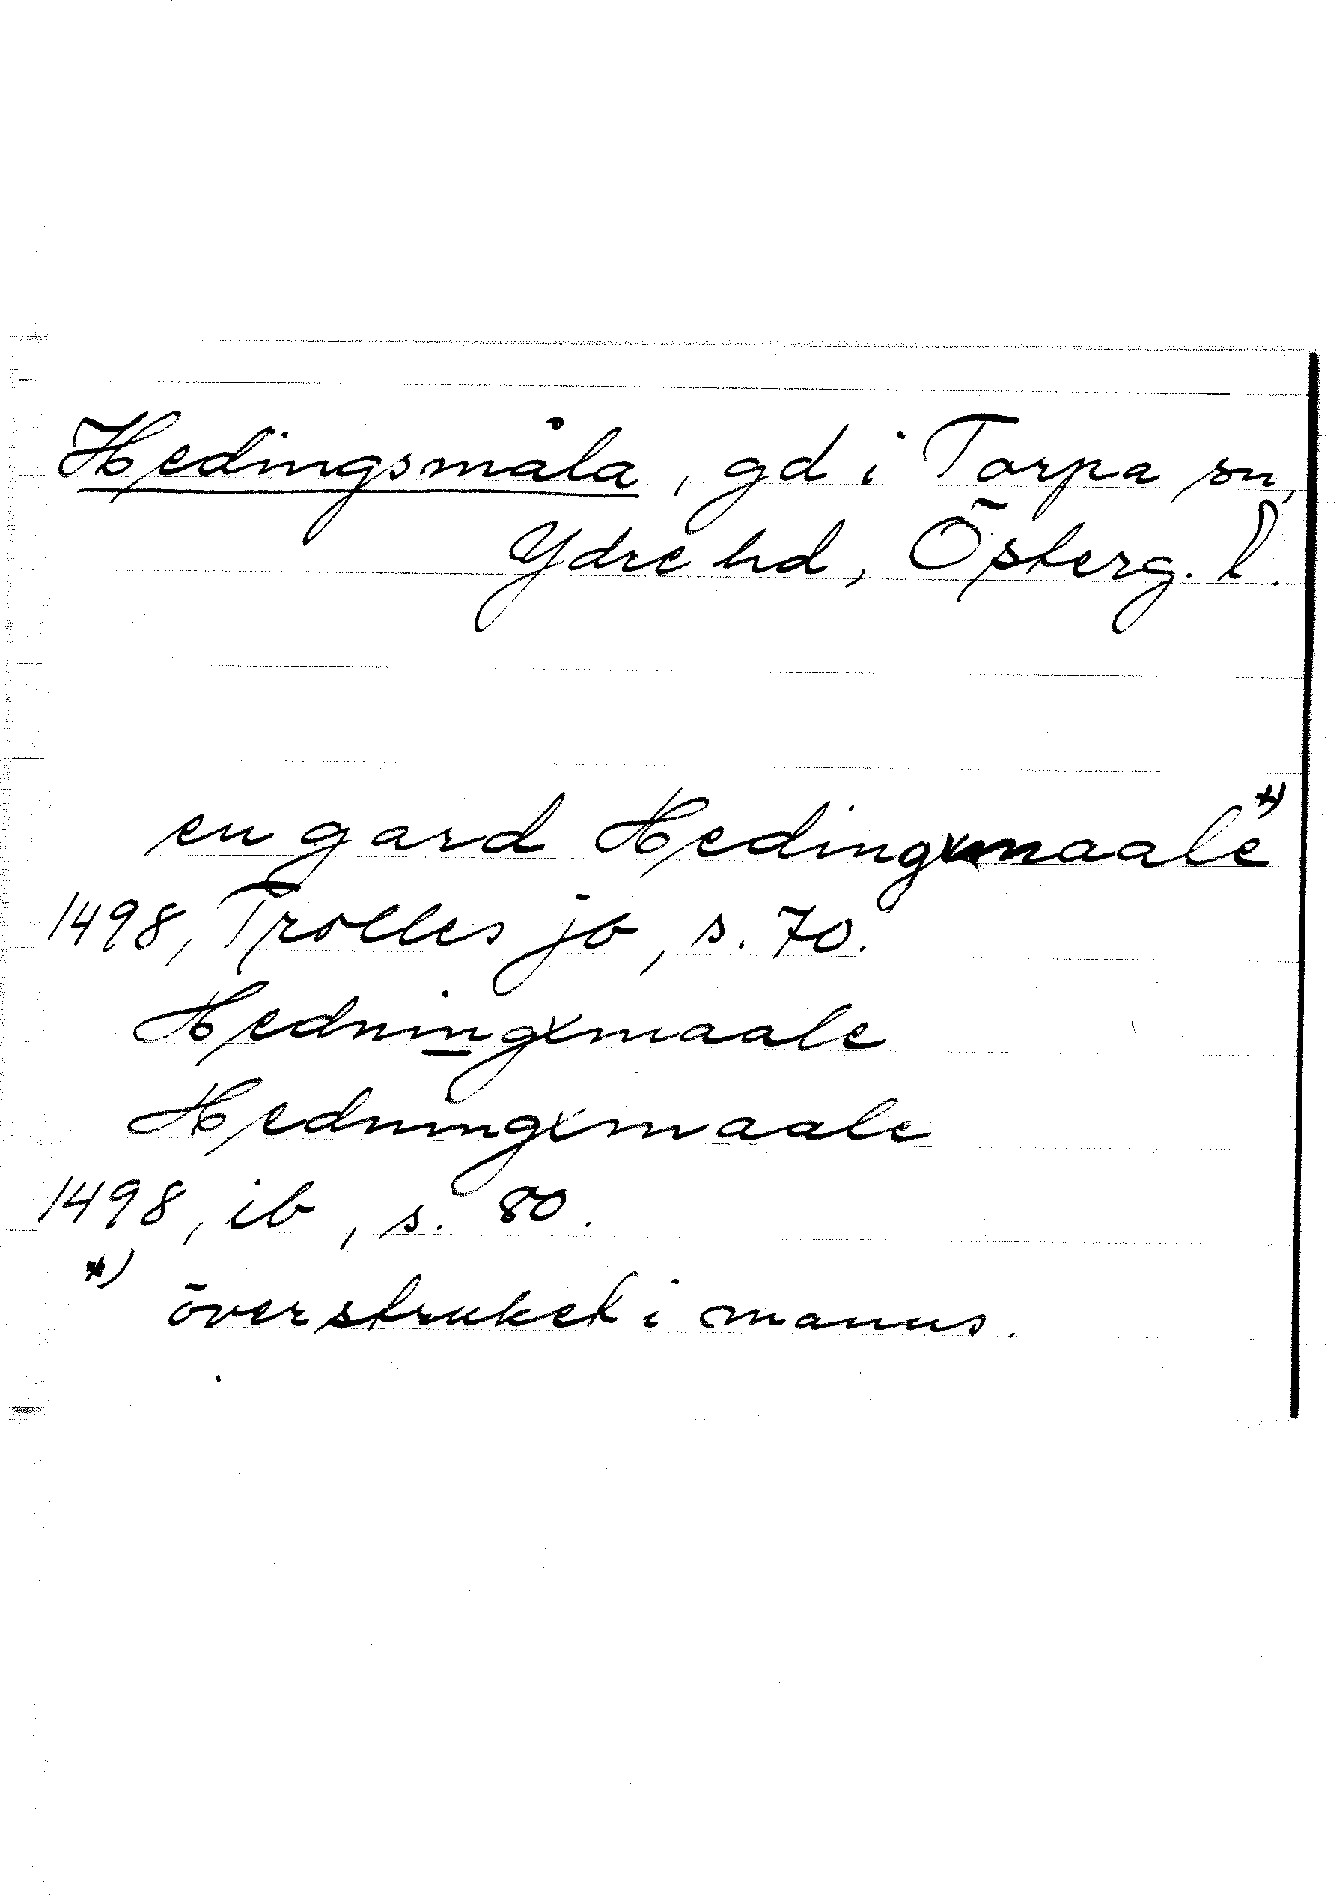 Hedingsmåla, gd i Torpa sn,
Ydre hd, Österg. l.
en gard Hedingxmaale *)
1498, Trolles jb, s. 70.
Hedningxmaale
Hedningxmaale
1498, ib, s. 80.
*) överstruket i manus.